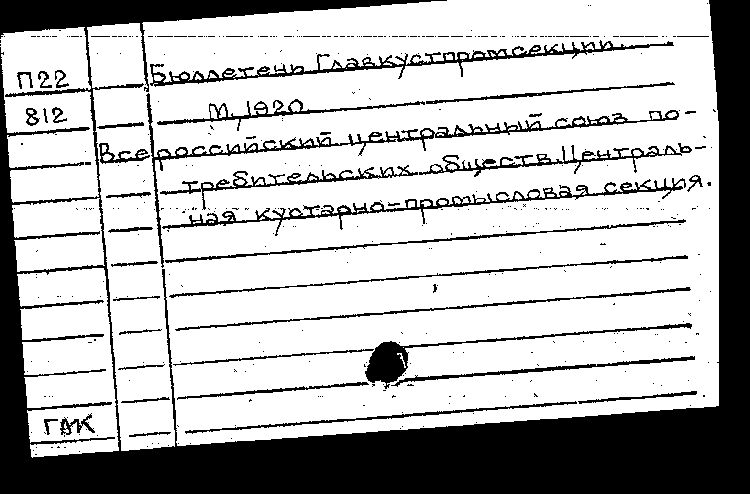 П22 Бюллетень Главкустпромсекции.
812 М., 1920.
Всероссийский центральный союз по-
требительских обществ. Централь-
ная кустарно-промысловая секция.
ГАК